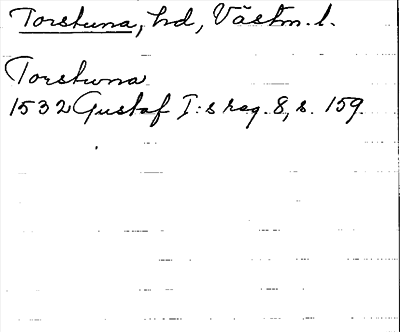 Torstuna, hd, Västm. l.
Torstuna
1532 Gustaf I:s reg. 8, s. 159.